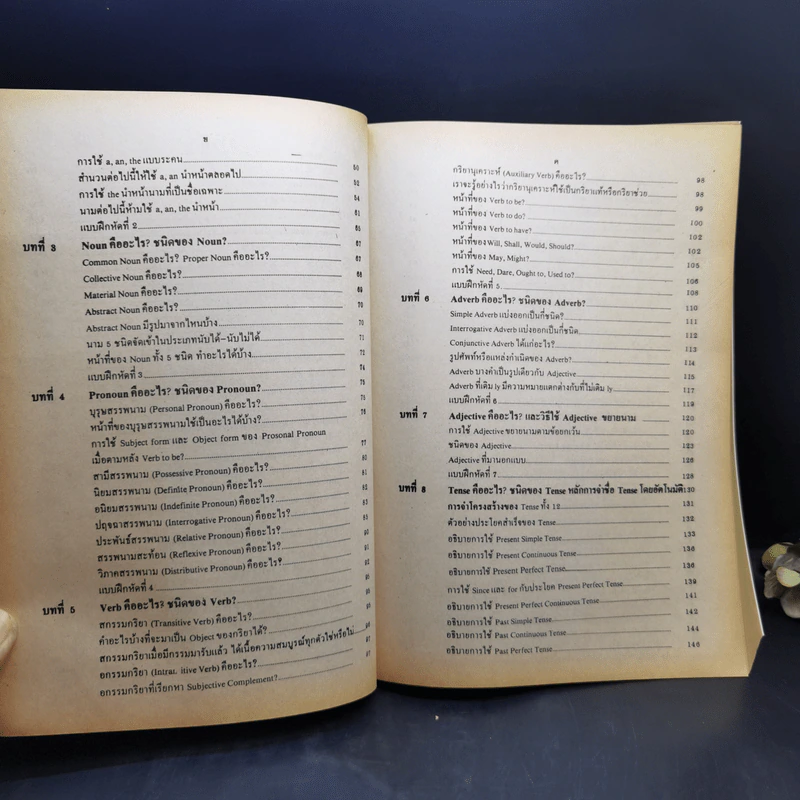 ข
การใช้ a, an, the แบบระคน 50
สำนวนต่อไปนี้ให้ใช้ a, an นำหน้าตลอดไป 52
การใช้ the นำหน้านามที่เป็นชื่อเฉพาะ 54
นามต่อไปนี้ห้ามใช้ a, an, the นำหน้า 61
แบบฝึกหัดที่ 2
บทที่ 3 Noun คืออะไร? ชนิดของ Noun? 67
Common Noun คืออะไร? Proper Noun คืออะไร?
Collective Noun คืออะไร?
Material Noun คืออะไร? 69
Abstract Noun คืออะไร? 70
Abstract Noun มีรูปมาจากไหนบ้าง 70
นาม 5 ชนิดจัดเข้าในประเภทนับได้-นับไม่ได้ 71
หน้าที่ของ Noun ทั้ง 5 ชนิด ทำอะไรได้บ้าง 72
แบบฝึกหัดที่ 3
บทที่ 4 Pronoun คืออะไร? ชนิดของ Pronoun?
บุรุษสรรพนาม (Personal Pronoun) คืออะไร?
หน้าที่ของบุรุษสรรพนามใช้เป็นอะไรได้บ้าง?
การใช้ Subject form และ Object form ของ Prosonal Pronoun
เมื่อตามหลัง Verb to be? 77
สามีสรรพนาม (Possessive Pronoun) คืออะไร? 80
นิยมสรรพนาม (Definite Pronoun) คืออะไร? 81
อนิยมสรรพนาม (Indefinite Pronoun) คืออะไร? 82
ปฤจฉาสรรพนาม (Interrogative Pronoun) คืออะไร?
ประพันธ์สรรพนาม (Relative Pronoun) คืออะไร?
สรรพนามสะท้อน (Reflexive Pronoun) คืออะไร?
วิภาคสรรพนาม (Distributive Pronoun) คืออะไร?
แบบฝึกหัดที่ 4
บทที่ 5 Verb คืออะไร? ชนิดของ Verb?
สกรรมกริยา (Transitive Verb) คืออะไร?
คำอะไรบ้างที่จะมาเป็น Object ของกริยาได้?
สกรรมกริยาเมื่อมีกรรมมารับแล้ว ได้เนื้อความสมบูรณ์ทุกตัวใช่หรือไม่
อกรรมกริยา (Intransitive Verb) คืออะไร?
อกรรมกริยาที่เรียกหา Subjective Complement?
ค
กริยานุเคราะห์ (Auxiliary Verb) คืออะไร? 98
เราจะรู้อย่างไรว่ากริยานุเคราะห์ใช้เป็นกริยาแท้หรือกริยาช่วย 98
หน้าที่ของ Verb to be? 99
หน้าที่ของ Verb to do? 100
หน้าที่ของ Verb to have? 102
หน้าที่ของ Will, Shall, Would, Should? 102
หน้าที่ของ May, Might? 105
การใช้ Need, Dare, Ought to, Used to? 106
แบบฝึกหัดที่ 5 108
บทที่ 6 Adverb คืออะไร? ชนิดของ Adverb? 110
Simple Adverb แบ่งออกเป็นกี่ชนิด? 111
Interrogative Adverb แบ่งออกเป็นกี่ชนิด 111
Conjunctive Adverb ได้แก่อะไร? 113
รูปศัพท์หรือแหล่งกำเนิดของ Adverb? 114
Adverb บางคำเป็นรูปเดียวกับ Adjective 115
Adverb ที่เติม ly มีความหมายแตกต่างกับที่ไม่เติม ly 117
แบบฝึกหัดที่ 6 119
บทที่ 7 Adjective คืออะไร? และวิธีใช้ Adjective ขยายนาม 120
การใช้ Adjective ขยายนามตามข้อยกเว้น 120
ชนิดของ Adjective 123
Adjective ที่มานอกแบบ 126
แบบฝึกหัดที่ 7 128
บทที่ 8 Tense คืออะไร? ชนิดของ Tense หลักการจำชื่อ Tense โดยอัตโนมัติ 130
การจำโครงสร้างของ Tense ทั้ง 12 131
ตัวอย่างประโยคสำเร็จของ Tense 132
อธิบายการใช้ Present Simple Tense 133
อธิบายการใช้ Present Continuous Tense 136
อธิบายการใช้ Present Perfect Tense 136
การใช้ Since และ for กับประโยค Present Perfect Tense 139
อธิบายการใช้ Present Perfect Continuous Tense 141
อธิบายการใช้ Past Simple Tense 142
อธิบายการใช้ Past Continuous Tense 144
อธิบายการใช้ Past Perfect Tense 146